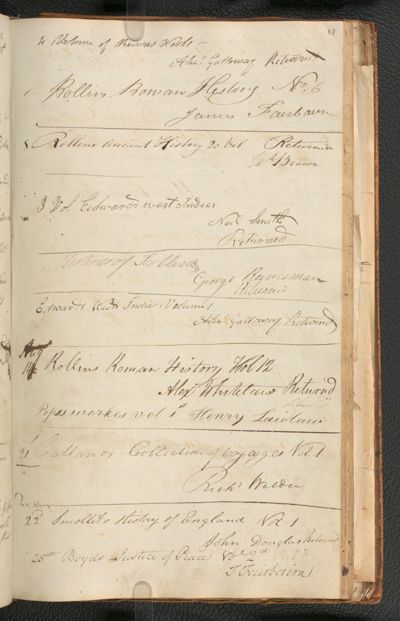 67
4 Volume of Humes Works
Alexr Galloway Returnd
Rollins Roman History No 6
James Fairbairn
Rollins Ancient History 2d Vol Returned
Brown
3 Vol Edwards west Indies
Neil Smith
Returnd
of Follie
George Runciman
Returnd
Edward West Indies Volume 1
Alexr Galloway Returnd
Aug
14 Rollins Roman History Vol 12
Alexr Whitelaw Returnd
Popes workes vol 1st Henry Laidlaw
21 Callanders Collection of voyages Vol 1
Richd Walder
22 Smollets History of England Vol 1
John Douglas Returnd
25th Boyds Justice of Peace Vol 2d
T Fairbairn